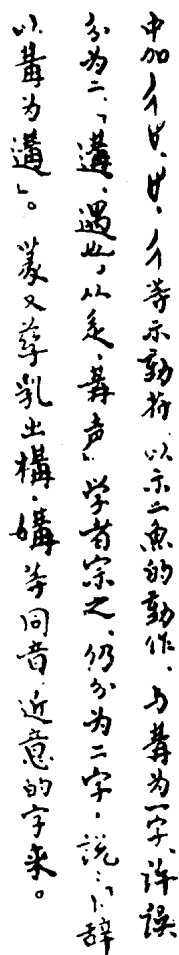 中加彳、止、廾、亻等示動符以示二魚的動作，与冓为一字、许误
分为二，「遘，遇也，从辵，冓声」学者宗之，仍分为二字，説：「卜辞
以冓为遘」。冓又孳乳出構、媾等同音、近意的字来。